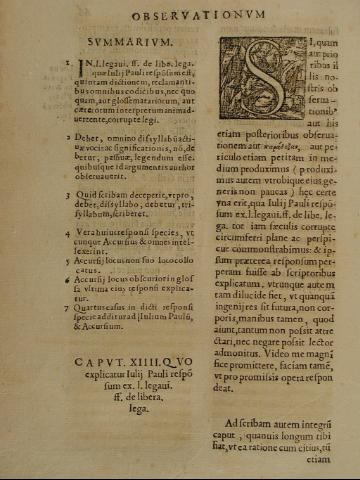 OBSERVATIONVM
SVMMARIVM.
1 IN.l.legaui. ff. de libe. lega.
que Iulij Pauli respõsum est,
quintam dictionem, reclamanti-
bus omnibus codicibus, nec quo
quam, aut glossematariorum, aut
cæterorum interpretum animad
uertente, corrupte legi.
2 Debet, omnino disyllabũ acti-
uæ vocis ac significationis, nõ, de
betur, passiuæ, legendum esse.
quibusque id argumentis author
obseruauerit.
3 Quid scribam deceperit, vt pro,
debet, disyllabo, debetur, tri-
syllabum, scriberet.
4 Vera huius responsi species, vt
cunque Accursius & omnes intel-
lexerint.
5 Accursij locus non suo loco collo
catus.
6 Accursij locus obscurior in glos
sa vltima eius responsi explica-
tur.
7 Quartus casus in dicti responsi
specie additur ad Iulium Paulũ,
& Accursium.
CAPVT. XIIII. QVO
explicatur Iulij Pauli respõ
sum ex. l. legaui.
ff. de libera.
lega.
SI, quan
aut prio
ribus il
lis no-
stris ob
serua-
tionib9
aut his
etiam posterioribus obserua-
tionem aut, aut pe-
riculo etiam petitam in me-
dium produximus (produxi-
mus autem vtrobique eius ge-
neris non paucas) hęc certe
vna erit, qua Iulij Pauli respõ-
sum ex. l. legaui. ff. de libe. le-
ga. tot iam sæculis corrupte
circumferri plane ac perspi-
cue commonstrabimus: & ip-
sum præterea responsum per-
peram fuisse ab scriptoribus
explicatum, vtrunque autem
tam dilucide fiet, vt quanquã
ingenij res sit futura, non cor-
poris, manibus tamen, quod
aiunt, tantum non possit attre
ctari, nec negare possit lector
admonitus. Video me magni
fice promittere, faciam tamẽ,
vt pro promissis opera respon
deat.
Ad scribam autem integrũ
caput, quamuis longum tibi
fiat, vt ea ratione cum citius, tũ
etiam